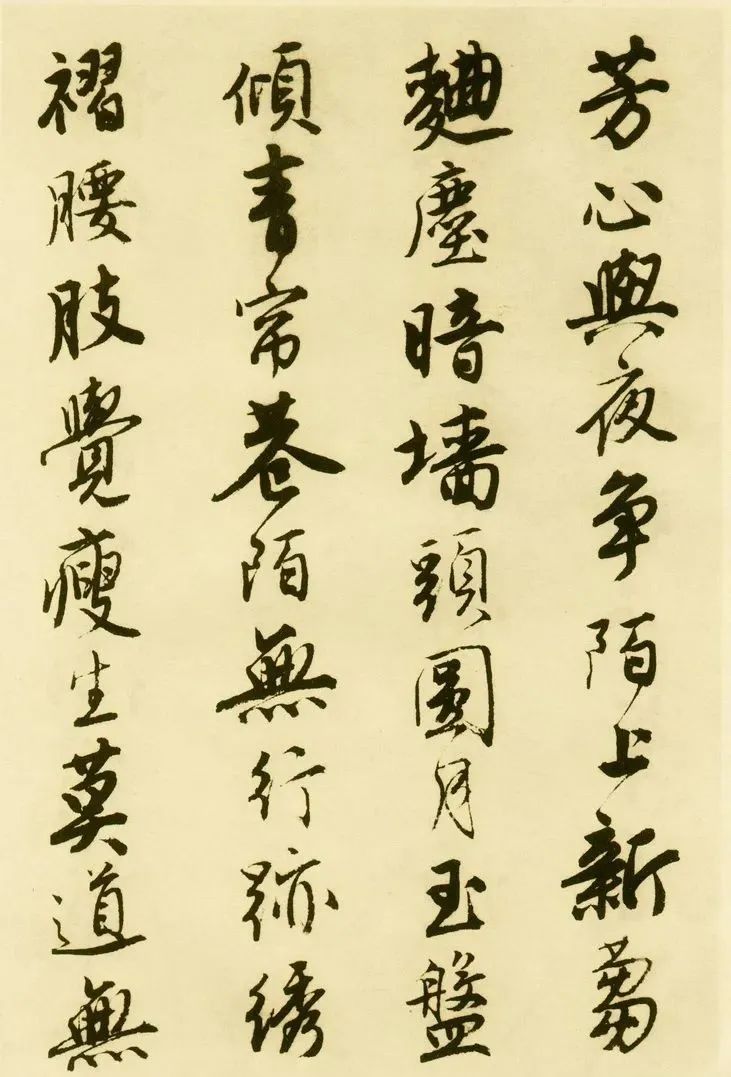 芳心與夜争陌上新蒭
麯塵暗墻頭圓月玉盤
傾青帘巷陌無行跡綉
褶腰肢覺瘦生莫道無